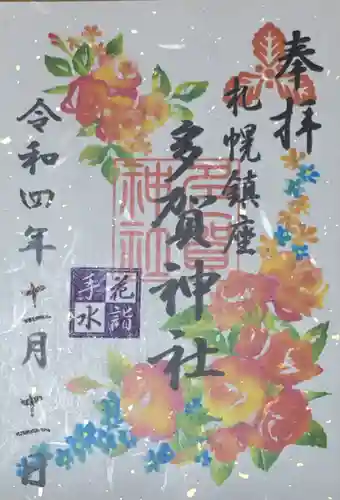 奉拝
札幌鎮座
多賀神社
多賀
神社
花詣
手水
令和四年十一月十一日